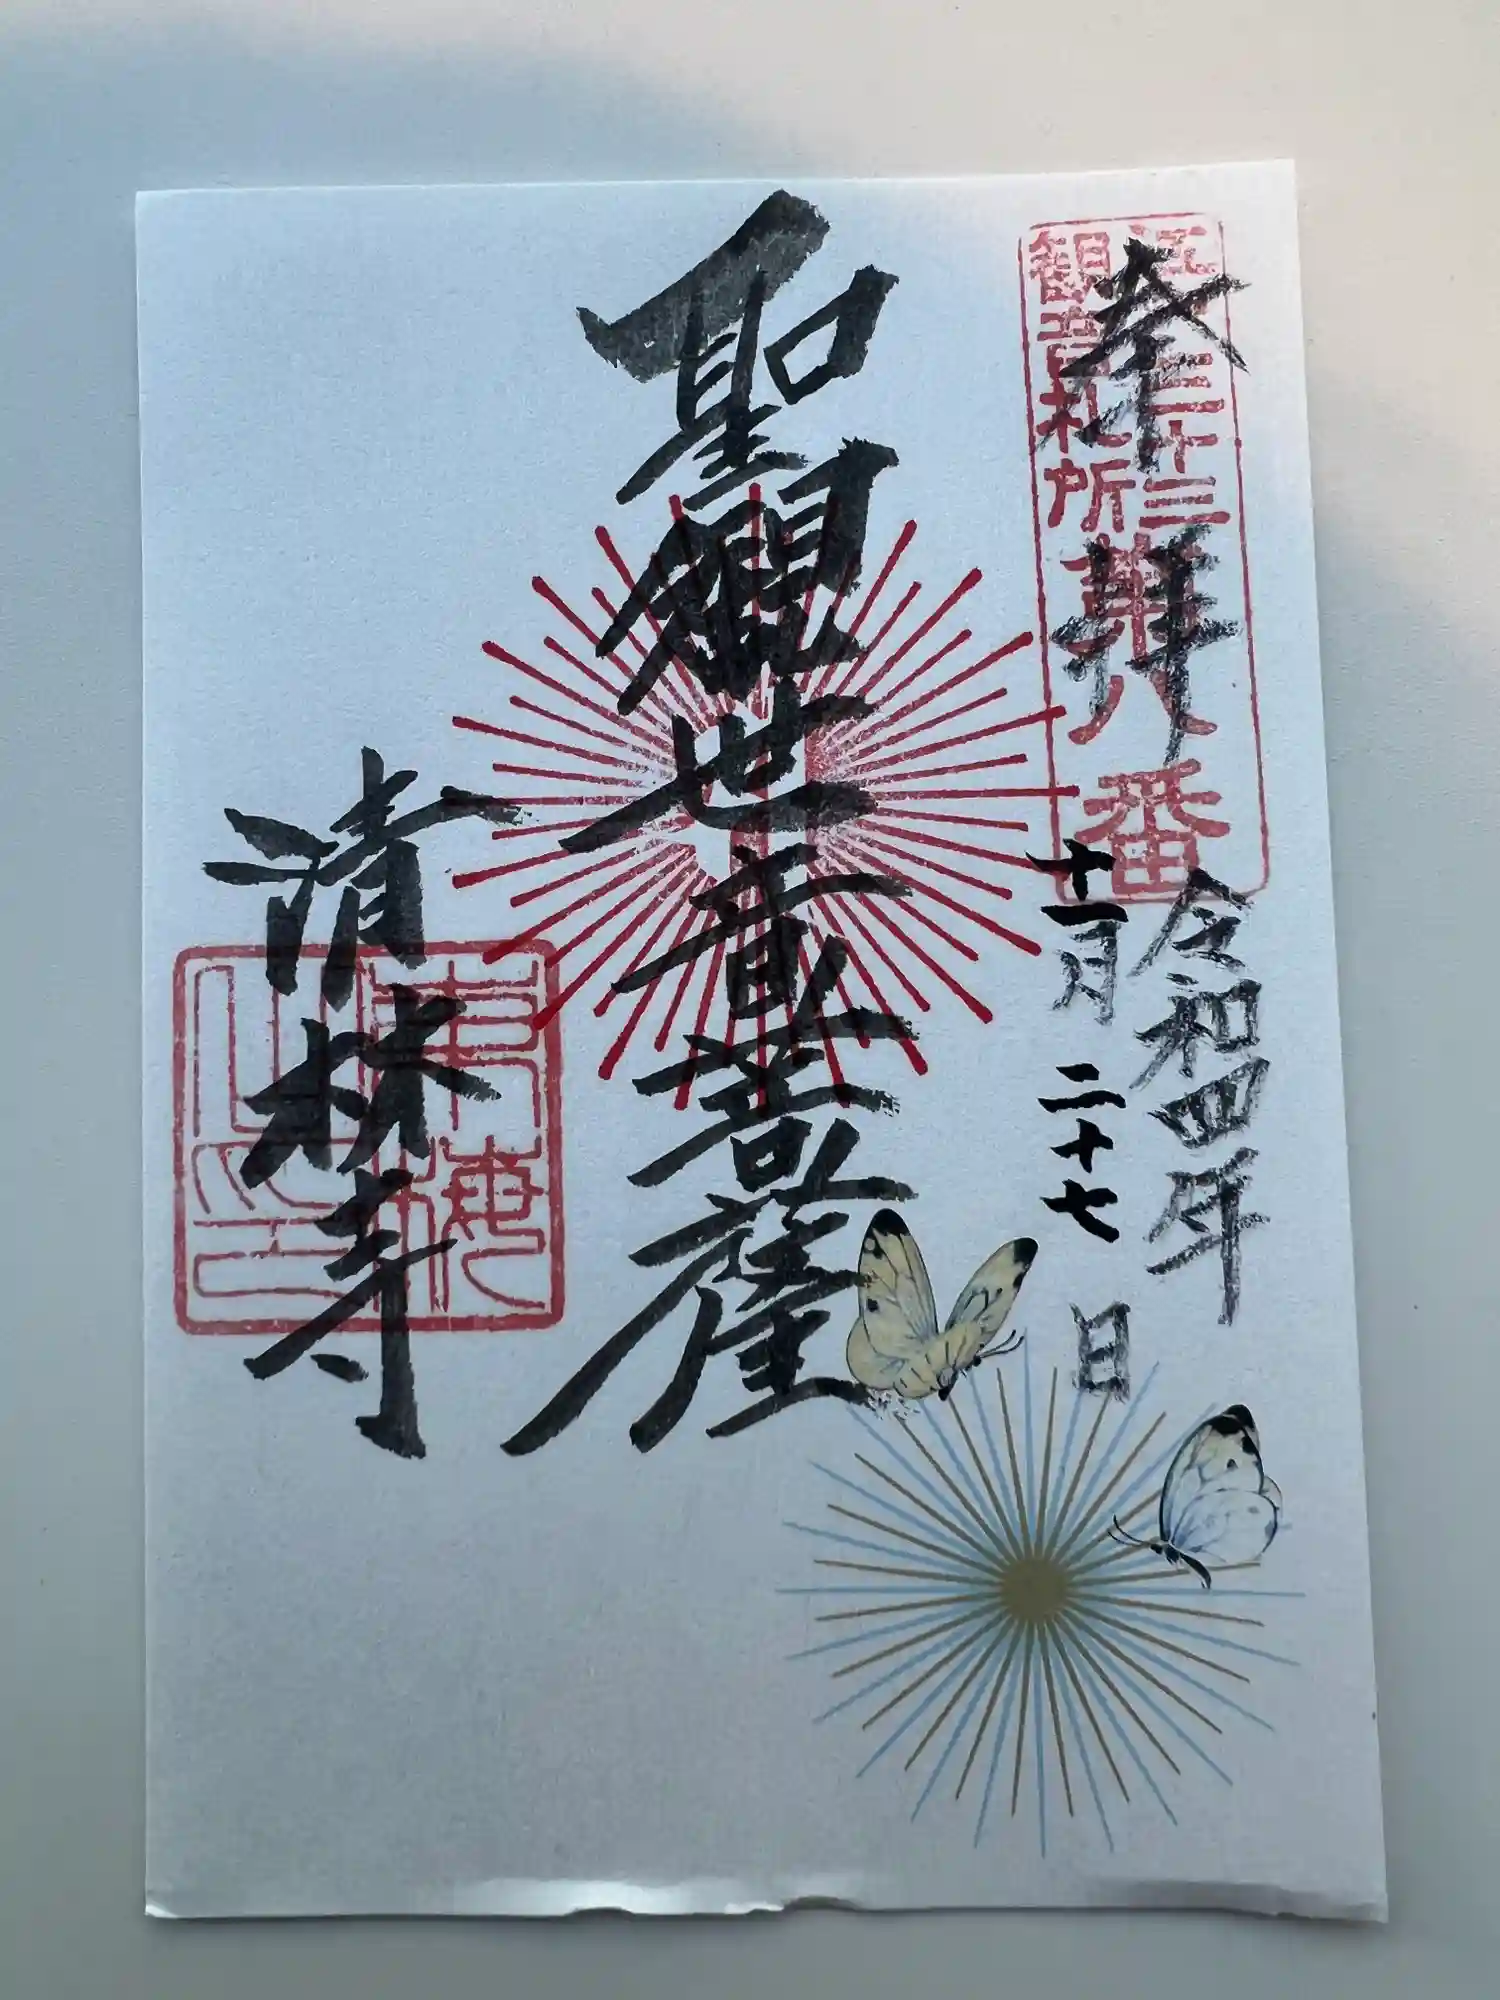 奉拝
江戸三十三
観音札所
第八番
令和四年
十一月二十七日
聖観世音菩薩
清林寺
東梅
山印